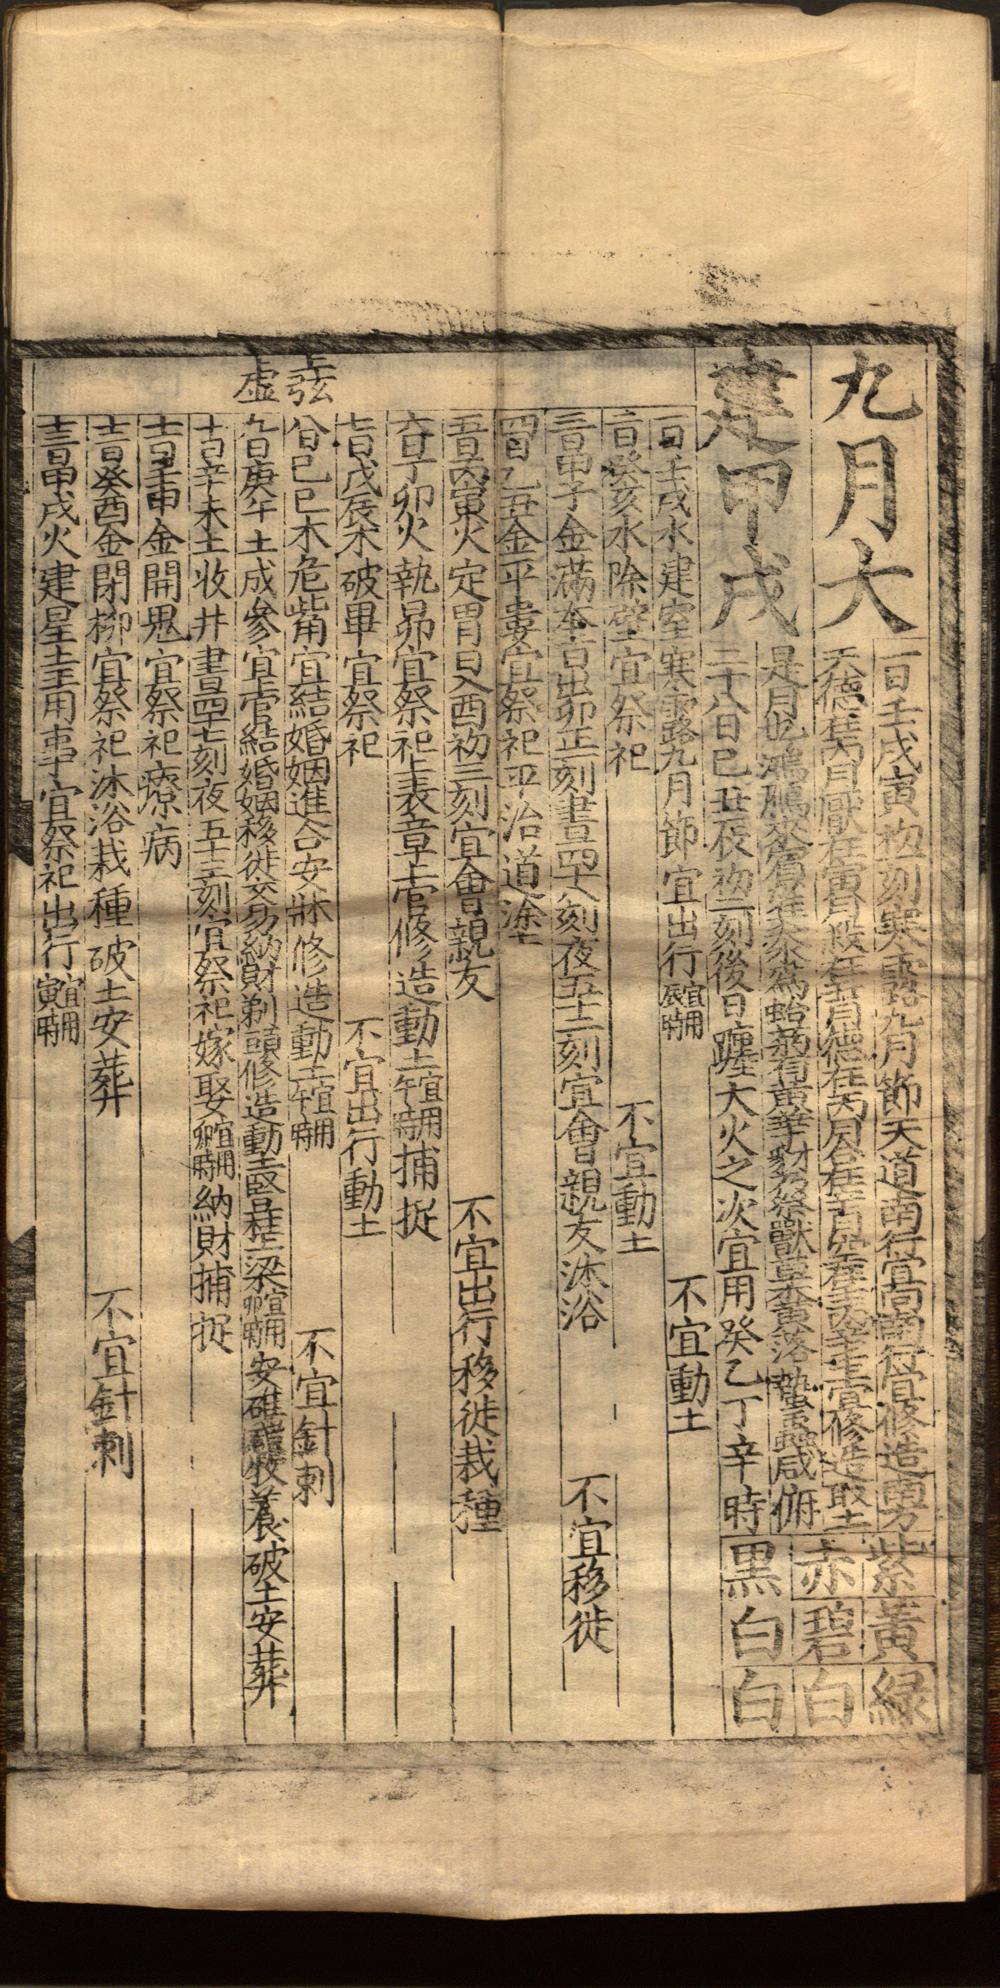 九月大
建甲戌
一日壬戌寅初一刻寒露九月節天道南行宜向南行宜修造南方
天德在丙月厭在寅月煞在丑月德在丙月合在辛月空在壬丙辛壬上宜修造取土
是月也鴻鴈來賓雀入大水為蛤菊有黃華豺乃祭獸草木黃落蟄蟲咸俯
二十八日己丑辰初二刻後日躔大火之次宜用癸乙丁辛時
紫黃綠
赤碧白
黑白白
一日壬戌水建室寒露九月節宜出行宜用辰時 不宜動土
二日癸亥水除壁宜祭祀 不宜動土
三日甲子金滿奎日出卯正一刻晝四十八刻夜五十二刻宜會親友沐浴 不宜移徙
四日乙丑金平婁宜祭祀平治道塗
五日丙寅火定胃日入酉初三刻宜會親友 不宜出行移徙栽種
六日丁卯火執昴宜祭祀上表章上官修造動土宜用午時捕捉
七日戊辰木破畢宜祭祀 不宜出行動土
上弦 八日己巳木危觜宜結婚姻進人口安牀修造動土宜用午時 不宜針刺
虛 九日庚午土成參宜上官結婚姻移徙交易納財剃頭修造動土豎柱上梁宜用卯時安碓磑牧養破土安葬
十日辛未土收井晝四十七刻夜五十三刻宜祭祀嫁娶宜用卯時納財捕捉
十一日壬申金開鬼宜祭祀療病
十二日癸酉金閉柳宜祭祀沐浴栽種破土安葬 不宜針刺
十三日甲戌火建星土王用事宜祭祀出行宜用寅時